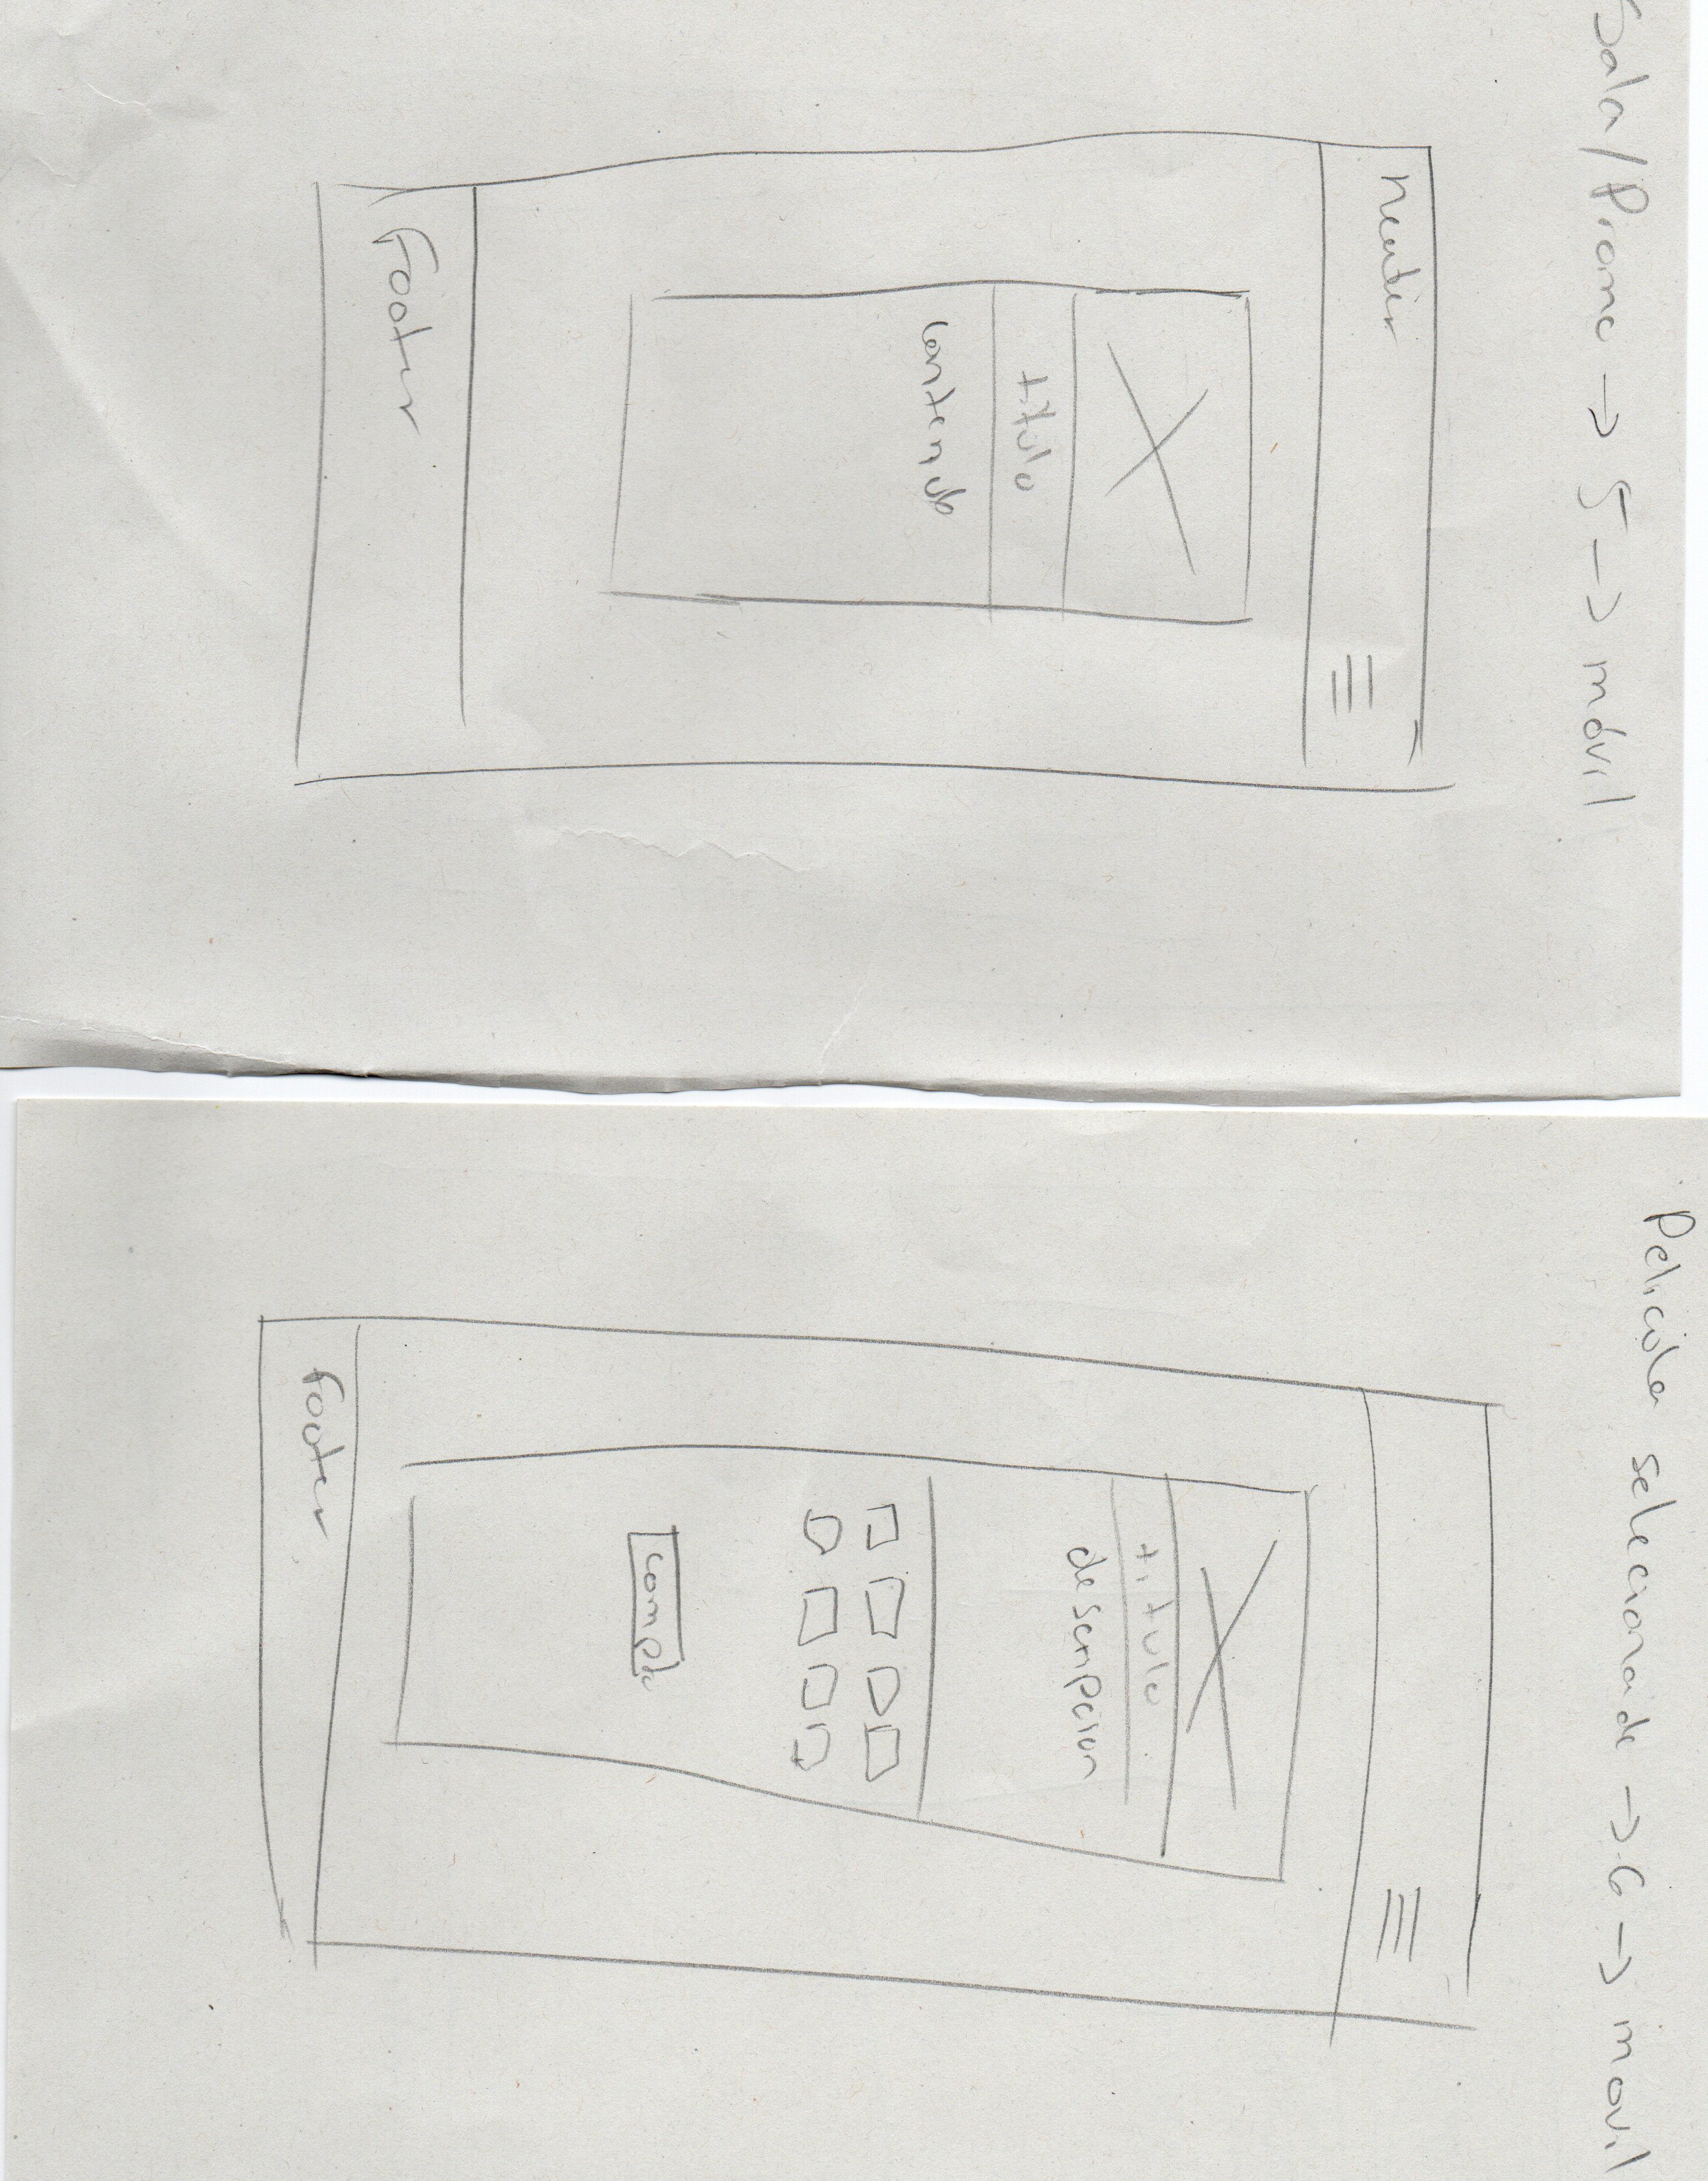 Sala/Promo → 5 → móvil
Header
titulo
contenido
Footer
Pelicula selecionada → 6 → movil
titulo
descripcion
Footer